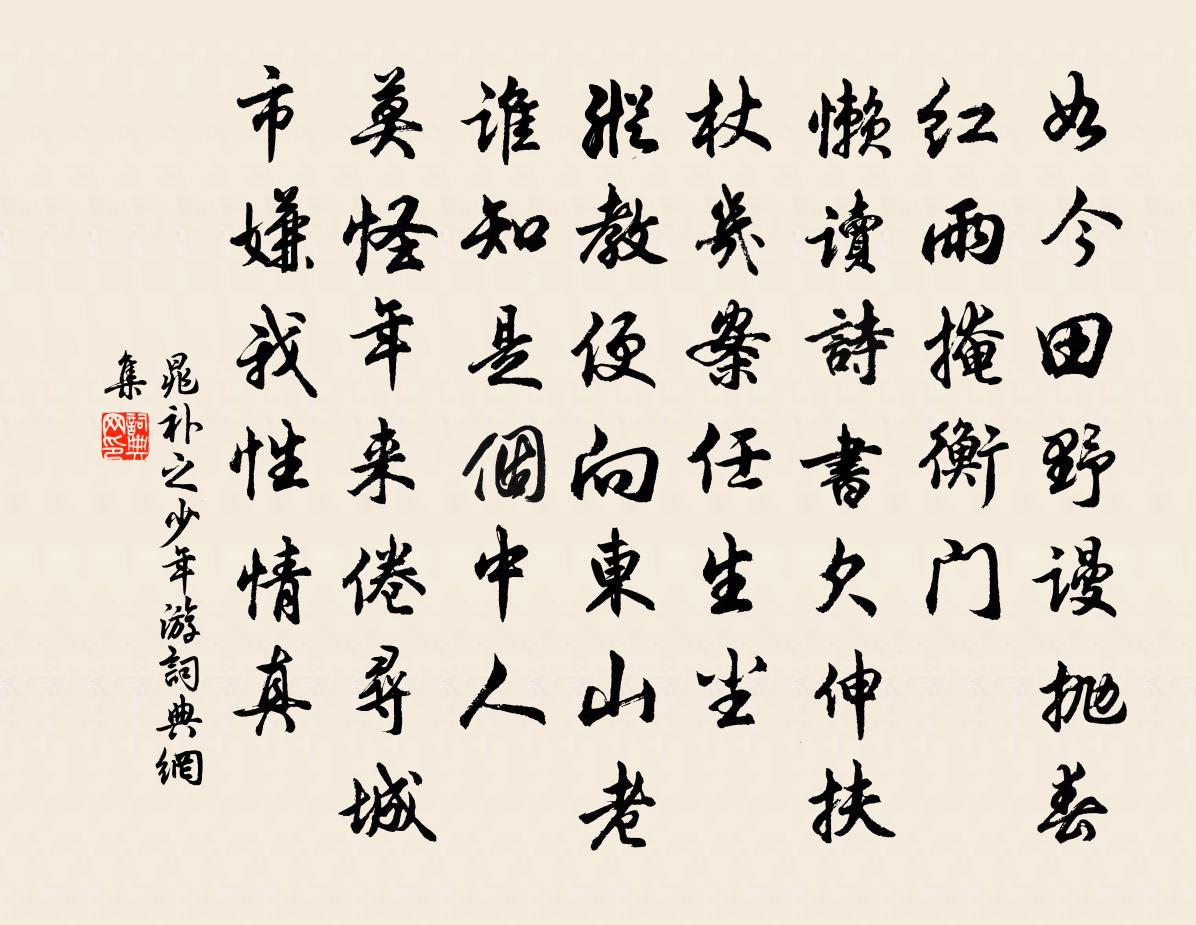 如今田野谩抛春
红雨掩衡门
懒讀詩書欠伸扶
杖幾案任生尘
縱教便向東山老
谁知是個中人
莫怪年来倦尋城
市嫌我性情真
晁补之少年游詞典網
集
詞典网印